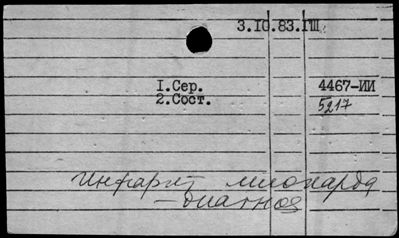 3.10.83.ГШ
I.Сер. 4467-ИИ
2.Сост. 5217
Инфаркт миокарда
— диагноз